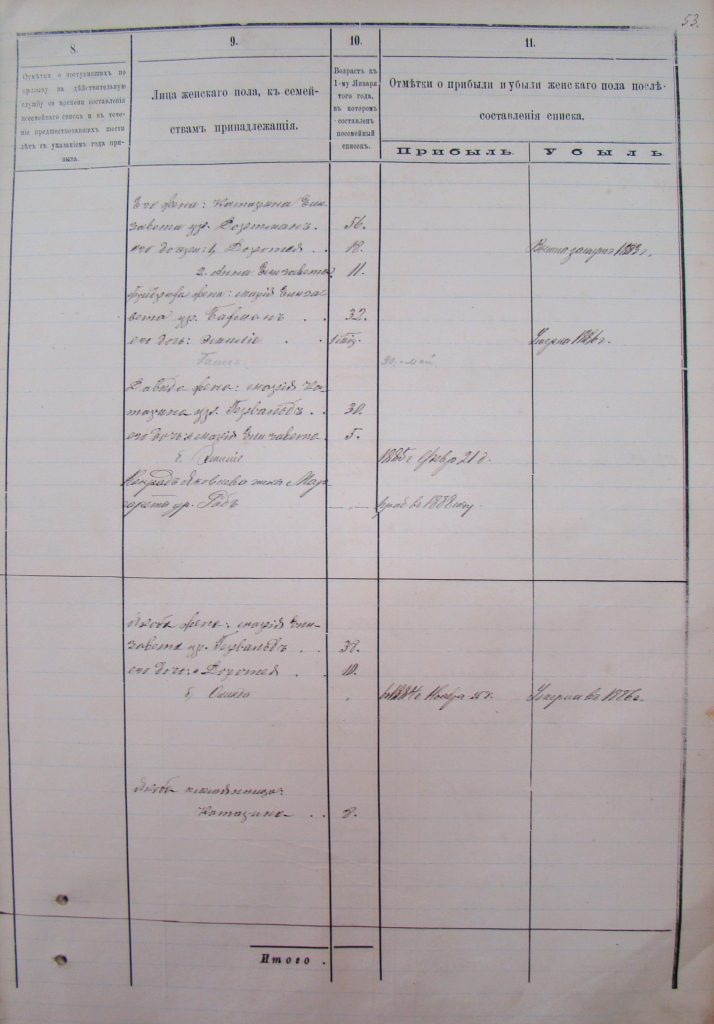 53.
8.
Отмѣтки о поступившихъ по
призыву на дѣйствительную
службу со времени составленія
посемейнаго списка и въ тече-
ніе предшествовавшихъ шести
лѣтъ съ указаніемъ года при-
зыва.
9.
Лица женскаго пола, къ семей-
ствамъ принадлежащія.
10.
Возрастъ къ
1-му Января
того года,
въ которомъ
составленъ
посемейный
списокъ.
11.
Отмѣтки о прибыли и убыли женскаго пола послѣ-
составленія списка.
Прибыль.
Убыль
Его жена: Катазина Ели-
завета ур. 56.
его дочери: 1, Доротея . . 18. Вышла замужъ 1883 г.
2. Анна Елизавета 11.
жена: Марія Елиза-
вета ур. . 32.
его дочь: Эмилие . Умерла 1886 г.
30, май.
Давида жена: Марія Ка-
тазина ур. Гехвальдъ . . 30.
его дочь: а Марія Елизавета. 5.
б. Эмилие 1885 г. Февр. 21 д.
Конрадъ Яковлева жена Мар-
гарета ур. — „ — въ 1888 году.
Якоба жена: Марія Ели-
завета ур. Гехвальдъ . . 38.
его дочь: а Доротея . . 10.
б, 1884 г. Ноября Умерла въ 1886 г.
Якоба племянница:
Катазина . . 8.
Итого .